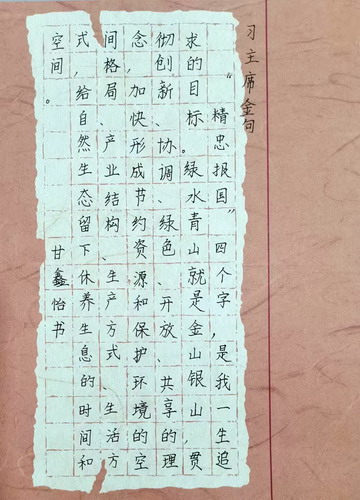 习主席金句
“精忠报国”四个字，是我一生追
求的目标。绿水青山就是金山银山，贯
彻创新、协调、绿色、开放、共享的理
念，加快形成节约资源和保护环境的空
间格局、产业结构、生产方式、生活方
式，给自然生态留下休养生息的时间和
空间。
甘鑫怡书